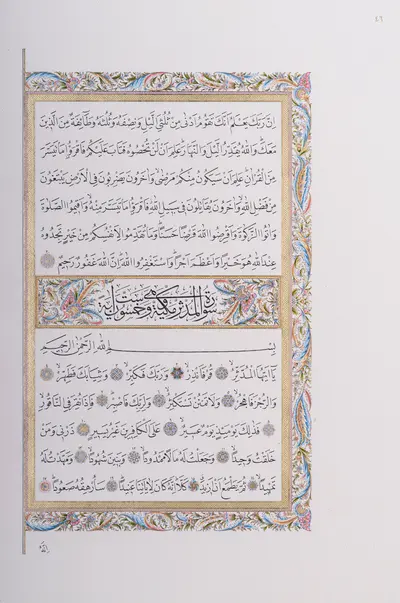 ٤٦
إِنَّ رَبَّكَ يَعْلَمُ أَنَّكَ تَقُومُ أَدْنَىٰ مِن ثُلُثَيِ اللَّيْلِ وَنِصْفَهُ وَثُلُثَهُ وَطَائِفَةٌ مِنَ الَّذِينَ
مَعَكَ وَاللَّهُ يُقَدِّرُ اللَّيْلَ وَالنَّهَارَ عَلِمَ أَن لَّن تُحْصُوهُ فَتَابَ عَلَيْكُمْ فَاقْرَءُوا مَا تَيَسَّرَ
مِنَ الْقُرْآنِ عَلِمَ أَن سَيَكُونُ مِنكُم مَّرْضَىٰ وَآخَرُونَ يَضْرِبُونَ فِي الْأَرْضِ يَبْتَغُونَ
مِن فَضْلِ اللَّهِ وَآخَرُونَ يُقَاتِلُونَ فِي سَبِيلِ اللَّهِ فَاقْرَءُوا مَا تَيَسَّرَ مِنْهُ وَأَقِيمُوا الصَّلَاةَ
وَآتُوا الزَّكَاةَ وَأَقْرِضُوا اللَّهَ قَرْضًا حَسَنًا وَمَا تُقَدِّمُوا لِأَنفُسِكُم مِّنْ خَيْرٍ تَجِدُوهُ
عِندَ اللَّهِ هُوَ خَيْرًا وَأَعْظَمَ أَجْرًا وَاسْتَغْفِرُوا اللَّهَ إِنَّ اللَّهَ غَفُورٌ رَّحِيمٌ
سورة المدثر مكية وهي ست وخمسون آية
بِسْمِ اللَّهِ الرَّحْمَٰنِ الرَّحِيمِ
يَا أَيُّهَا الْمُدَّثِّرُ قُمْ فَأَنذِرْ وَرَبَّكَ فَكَبِّرْ وَثِيَابَكَ فَطَهِّرْ
وَالرُّجْزَ فَاهْجُرْ وَلَا تَمْنُن تَسْتَكْثِرُ وَلِرَبِّكَ فَاصْبِرْ فَإِذَا نُقِرَ فِي النَّاقُورِ
فَذَٰلِكَ يَوْمَئِذٍ يَوْمٌ عَسِيرٌ عَلَى الْكَافِرِينَ غَيْرُ يَسِيرٍ ذَرْنِي وَمَنْ
خَلَقْتُ وَحِيدًا وَجَعَلْتُ لَهُ مَالًا مَّمْدُودًا وَبَنِينَ شُهُودًا وَمَهَّدتُّ لَهُ
تَمْهِيدًا ثُمَّ يَطْمَعُ أَنْ أَزِيدَ كَلَّا إِنَّهُ كَانَ لِآيَاتِنَا عَنِيدًا سَأُرْهِقُهُ صَعُودًا
إِنَّهُ